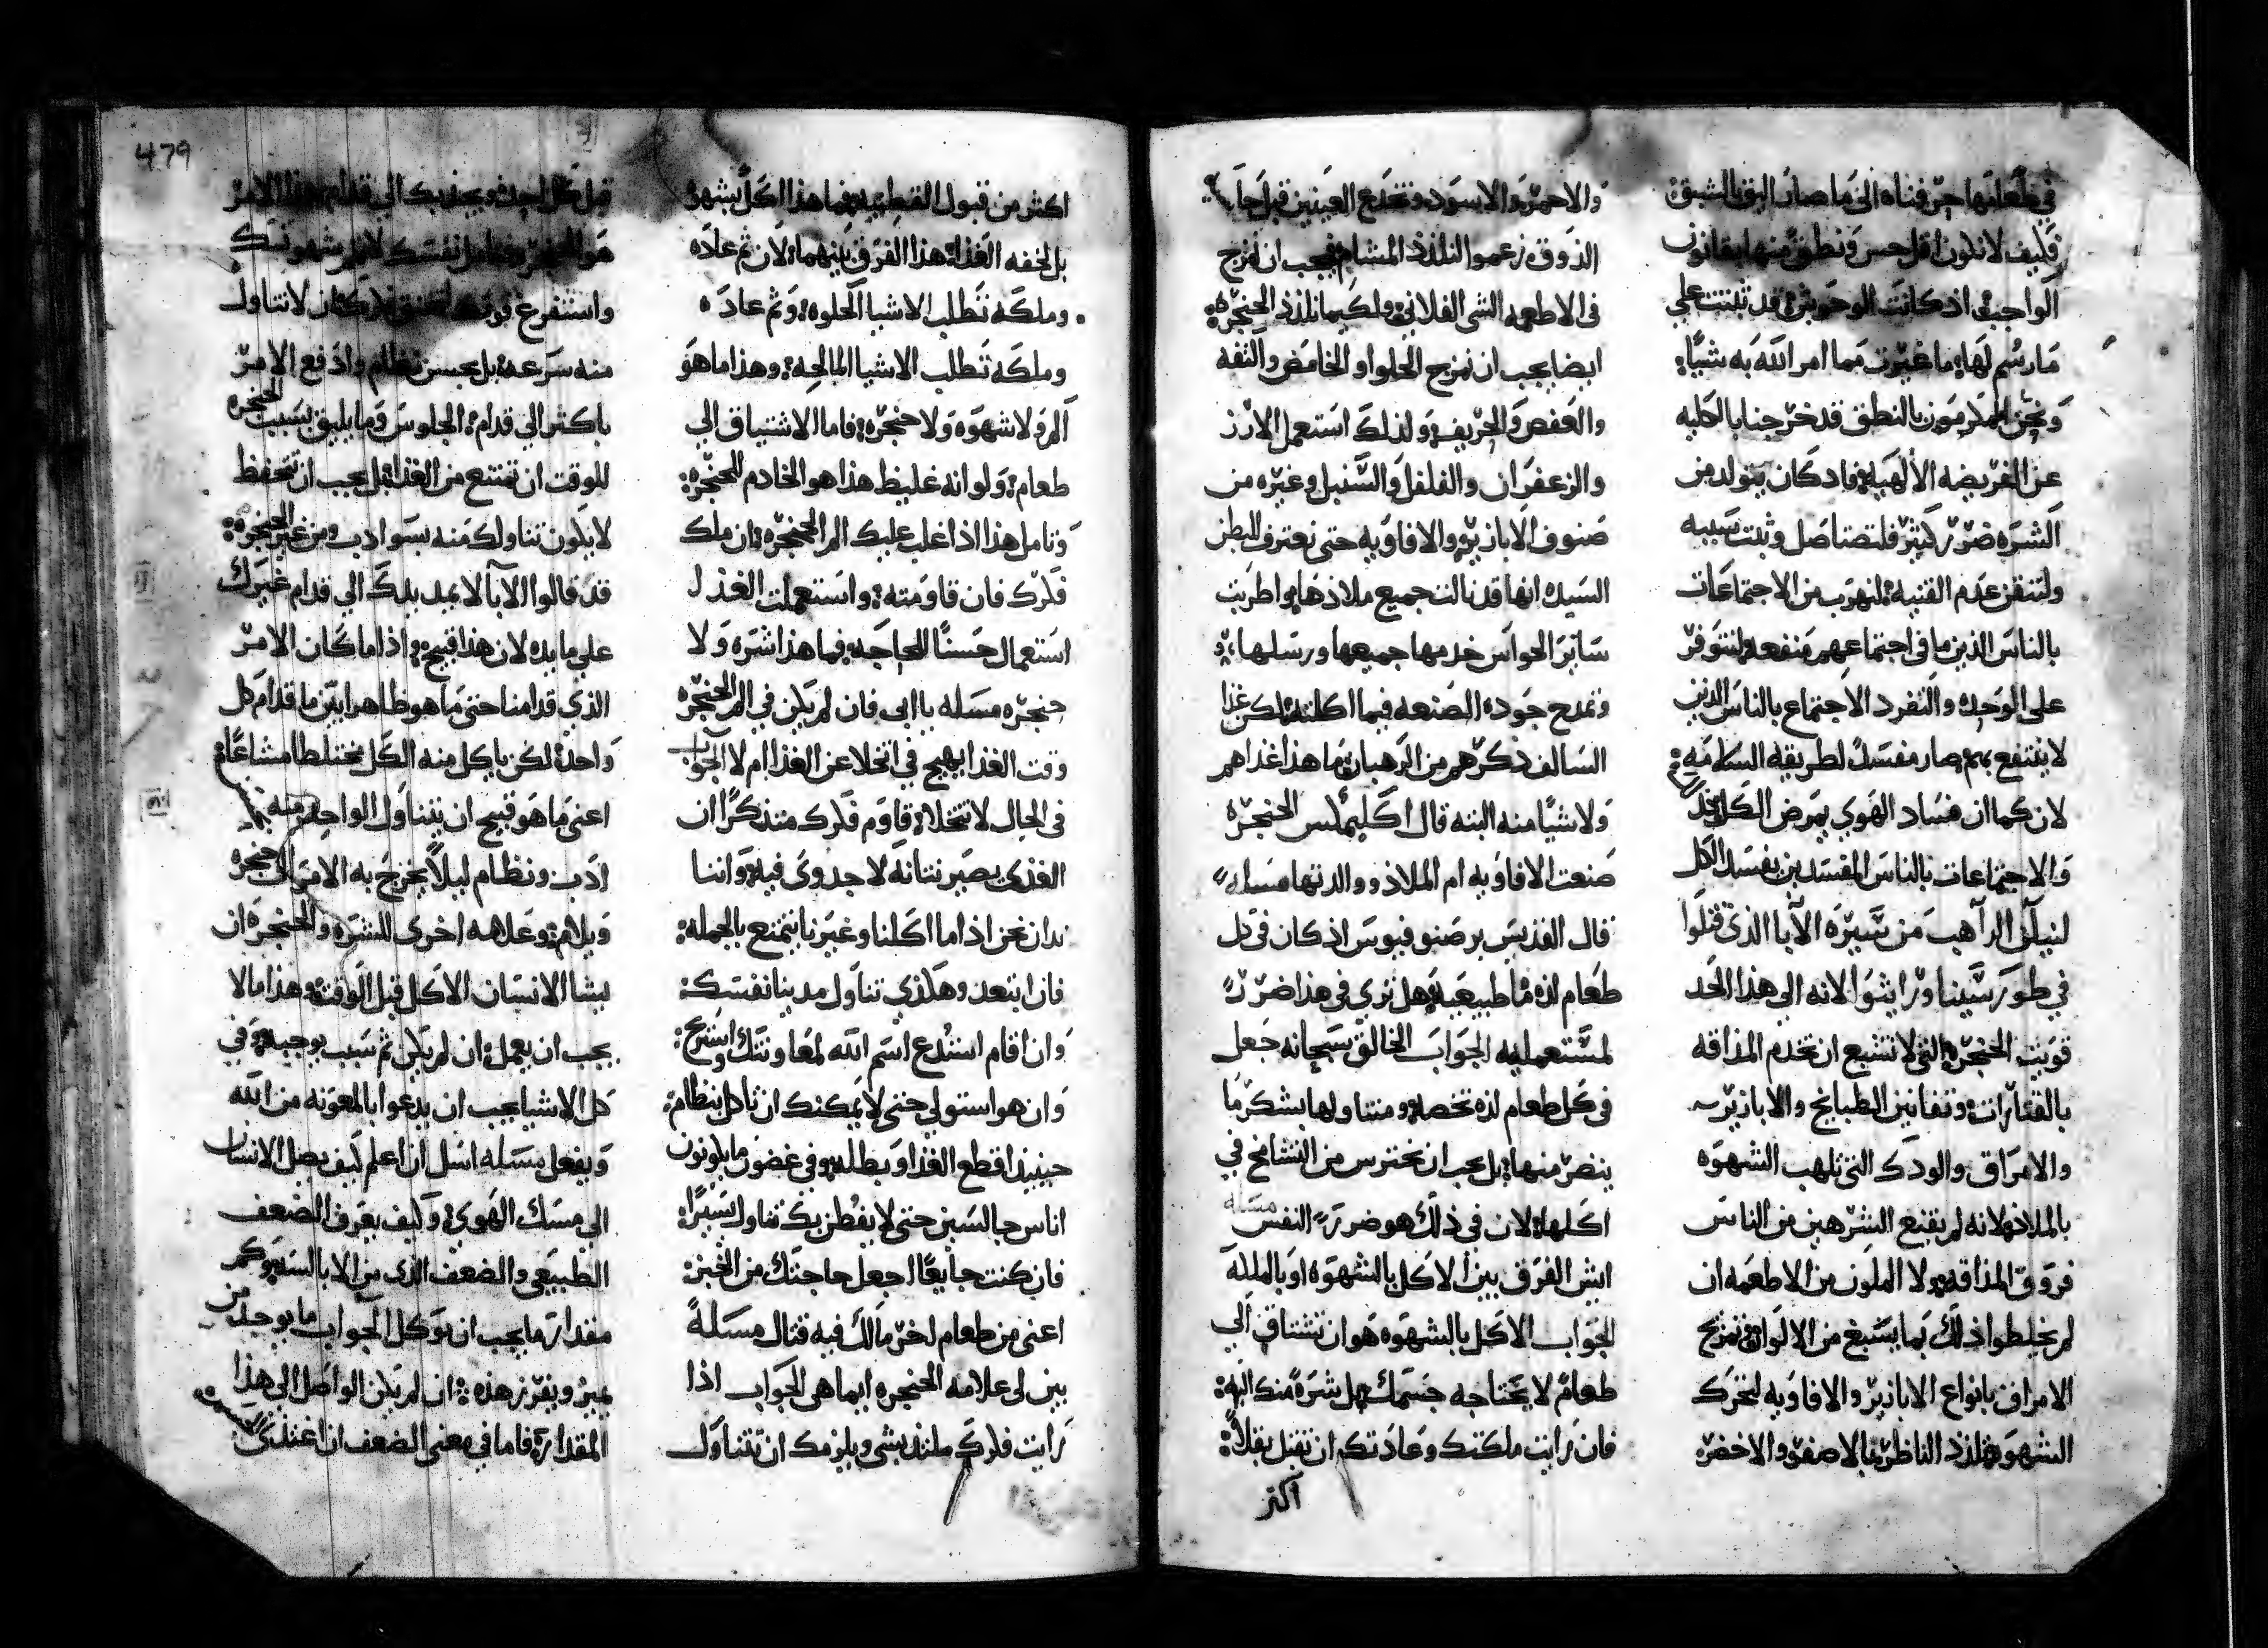 في طعامها حين فتناه الى ما صار البق الشبق
فكيف لا نكون اقل حس ونطق منها بقانون
الواجب اذ كانت الوحوش قد ثبتت علي
مارسم لها ما غيرت مما امر الله به شيًا
ونحن المكرمون بالنطق قد خرجنا بالكليه
عن الفريضه الالهيه فاد كان يتولد من
الشره ضرر كثير فلتصتاصل وثبت سببه
ولنتقن عدم القنيه لنهرب من الاجتماعات
بالناس الذين ما في اجتماعهم منفعه ولنتوفر
على الوحده والتفرد الاجتماع بالناس الذين
لا ينتفع بهم صار مفسد لطريقه السلامه
لان كما ان فساد الهوي يمرض الكل
والاجتماعات بالناس المفسدين يفسد الكل
ليكن الراهب من سيره الآبا الذي قتلوا
في طور سينا ورايثوا لانه الى هذا الحد
قويت الحنجره التي لا تشبع ان تخدم المذاقه
بالقتارات وتفانين الطبايخ والابازير
والامراق والودك التي تلهب الشهوه
بالملاذ لانه لم يقنع الشرهين من الناس
فروق المذاقه ولا الملون من الاطعمه ان
لم يخلطوا ذلك بما يسبغ من الالوان تمزج
الامراق بانواع الابازير والافاويه لتحرك
الشهوه فتلذذ الناظر بالاصفر والاخضر
والاحمر والاسود وتخدع العينين قبل حا
الذوق زعموا التلذذ المشام فيجب ان نمزج
في الاطعمه الشي الفلاني ولكيما نلذذ الحنجره
ايضا يجب ان نمزج الحلو او الحامض والتفه
والعفص والحريف ولذلك استعمل الارز
والزعفران والفلفل والسنبل وغيره من
صنوف الابازير والافاويه حتى نعترف البطن
السيده انها قد نالت جميع ملاذها واطربت
سائر الحواس خدمها جميعها ورسلها
ونمدح جوده الصنعه فيما اكلته لكن غذا
السالف ذكرهم من الرهبان ما هذا غذاهم
ولا شيًا منه البته قال اكليمكس الحنجره
صنعت الافاويه ام الملاذ ووالدتها مسله
قال القديس برصنوفيوس اذ كان في كل
طعام لذه ما طبيعيه هل تري في هذا ضررً
لمستعمليه الجواب الخالق سبحانه جعل
في كل طعام لذه تخصه ومتناولها بشكر ما
ينضر منها بل يجب ان نحترس من التشامخ في
اكلها لان في ذلك هو ضررً النفس مسله
ايش الفرق بين الاكل بالشهوه او بالملكه
الجواب الاكل بالشهوه هو ان تشتاق الي
طعام لا يحتاجه جسمك بل شرهً منك اليه
فان رايت ملكتك وعادتكم ان تقبل بقلاً
اكتر
اكثر من قبول القطنيه فما هذا اكل بشهوه
بل لخفه الغذا هذا الفرق بينهما لان ثم عاده
وملكه تطلب الاشيا الحلوه وثم عاده
وملكه تطلب الاشيا المالحه وهذا ما هو
الم ولا شهوه ولا حنجره فاما الاشتياق الي
طعام ولو انه غليظ هذا هو الخادم للحنجره
وتامل هذا اذا غلب عليك الم الحنجره ان ملك
فكرك فان قاومته واستعملت الغذا
استعمال حسنًا للحاجه فما هذا شره ولا
حنجره مسله يا ابي فان لم يكن في الم الحنجره
وقت الغذا يهيج في اتخلا عن الغذا ام لا الجواب
في الحال لا تتخلا قاوم فكرك متذكرًا ان
الغذى يصير نتانه لا جدوى فيه واننا
ندان نحن اذ اما اكلنا وغيرنا يتمنع بالجمله
فان ابتعد وهكذي تناول مدينا نفسك
وان اقام استدع اسم الله لمعاونتك واستريح
وان هو استولي حتى لا يمكنك ان تاكل بنظام
حينيذ اقطع الغذا وبطله وفي غضون ما يكونون
اناس جالسين حتى لا يفطن بك تناول يسيرًا
فان كنت جايعًا اجعل حاجتك من الخبز
اعني من طعام اخر مالك فيه قتال مسلهً
بين لى علامه الحنجره ايما هي الجواب اذا
رايت فكرك ملتذ بشي ويلزمك ان تتناول
قبل كل احد ويجذبك الي قدام هذا الامر
هو الحنجره نفسك لامر شهوتك
واستفرع قوتك كان لا تتناول
منه سرعه بل بحسن نظام وادفع الامر
باكثر الي قدام الجلوس وما يليق بسبب الحنجره
للوقت ان تمتنع من الغذا بل يجب ان تحفظ
لا يكون تناولك منه بسو ادب ومن غير حنجره
قد قالوا الآبا لا يمد يدك الي قدام غيرك
علي مايده لان هذا قبيح واذا ما كان الامر
الذي قدامنا حتى ما هو ظاهرا بين ما قدام كل
واحد لكن ياكل منه الكل مختلطا مشاعًا
اعنى ما هو قبيح ان يتناول الواحد منه
ادب ونظام ليلاً يخرج به الامر الى حنجره
ويلام وعلامه اخرى للشره والحنجره ان
يشا الانسان الاكل قبل الوقت وهذا ما لا
يجب ان يعمل ان لم يكن ثم سبب يوجبه وفي
كل الاشيا يجب ان يدعوا بالمعونه من الله
ويفعل مسله اسل ان اعلم كيف يصل الانسان
الي مسك الهوي وكيف يعرف الضعف
الطبيعي والضعف الذى من الابالسه وكم
مقدار ما يجب ان نوكل الجواب ما يوجد من
يميز ويفرز هذه ان لم يكن الواصل الى هذا
المقدار فاما في معنى الضعف ان اغتذى